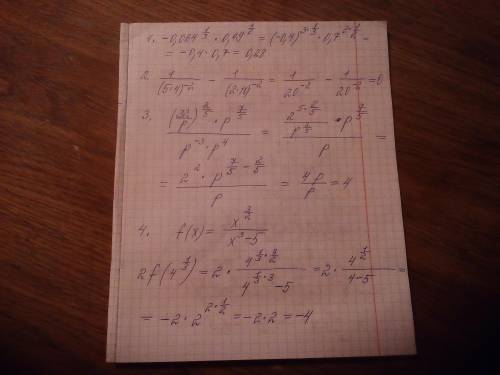 1. -0,064^(1/3) · 0,49^(1/2) = (-0,4)^(3·1/3) · 0,7^(2·1/2) =
= -0,4 · 0,7 = 0,28
2. 1/(5·4)^(-2) - 1/(2·10)^(-2) = 1/20^(-2) - 1/20^(-2) = 0
3. ((32/p)^(2/5) · p^(7/5))/(p^(-3) · p^4) = (2^(5·2/5)/p^(2/5) · p^(7/5))/p =
= (2^2 · p^(7/5 - 2/5))/p = 4p/p = 4
4. f(x) = x^(3/2)/(x^3-5)
2f(4^(1/3)) = 2 · 4^(1/3·3/2)/(4^(1/3·3)-5) = 2 · 4^(1/2)/(4-5) =
= -2 · 2^(2·1/2) = -2·2 = -4